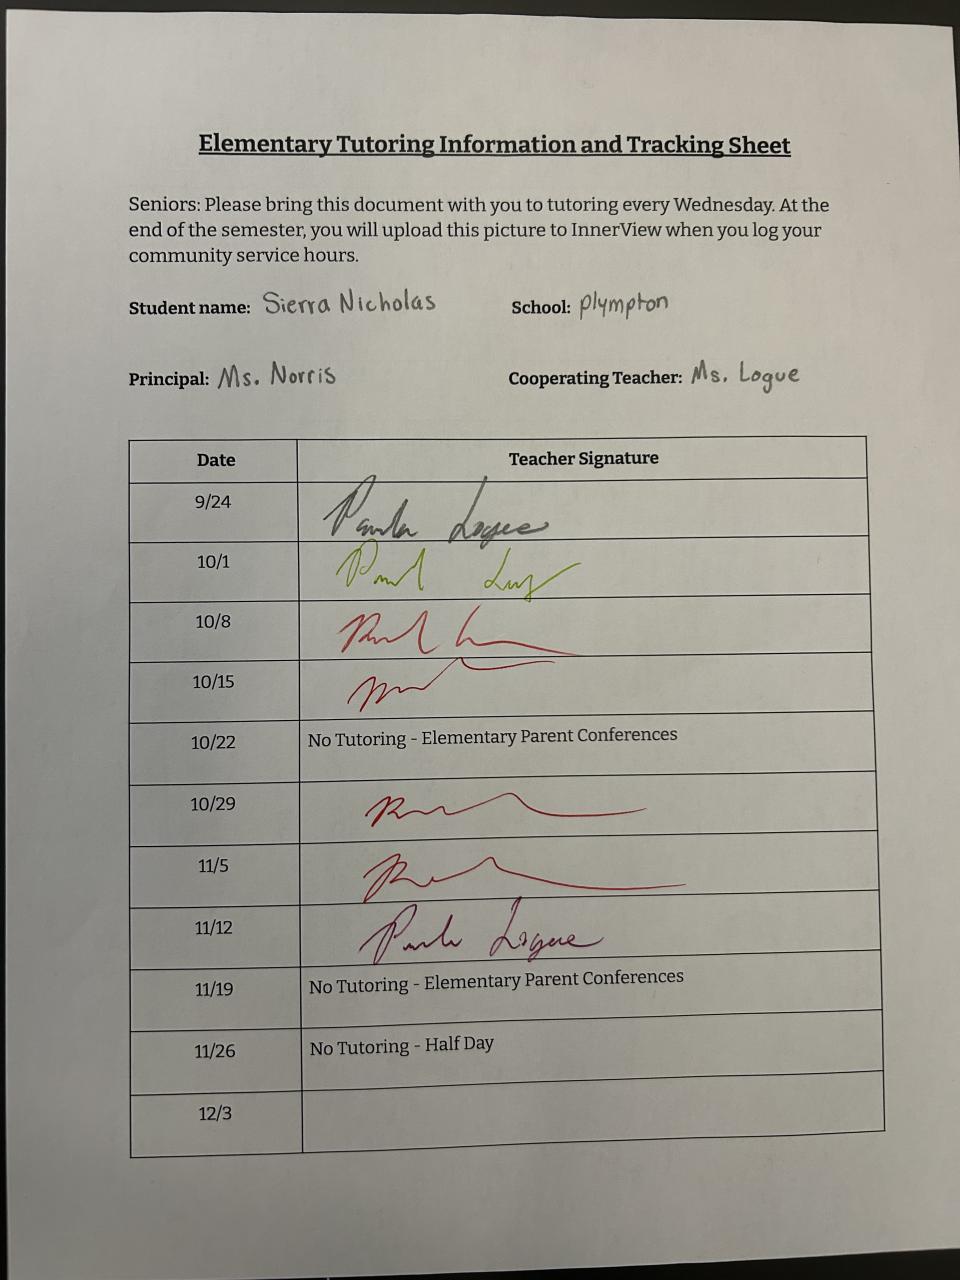 Elementary Tutoring Information and Tracking Sheet
Seniors: Please bring this document with you to tutoring every Wednesday. At the
end of the semester, you will upload this picture to InnerView when you log your
community service hours.
Student name: Sierra Nicholas School: Plympton
Principal: Ms. Norris Cooperating Teacher: Ms. Logue
Date Teacher Signature
9/24 Paula Logue
10/1
10/8
10/15
10/22 No Tutoring - Elementary Parent Conferences
10/29
11/5
11/12 Paula Logue
11/19 No Tutoring - Elementary Parent Conferences
11/26 No Tutoring - Half Day
12/3